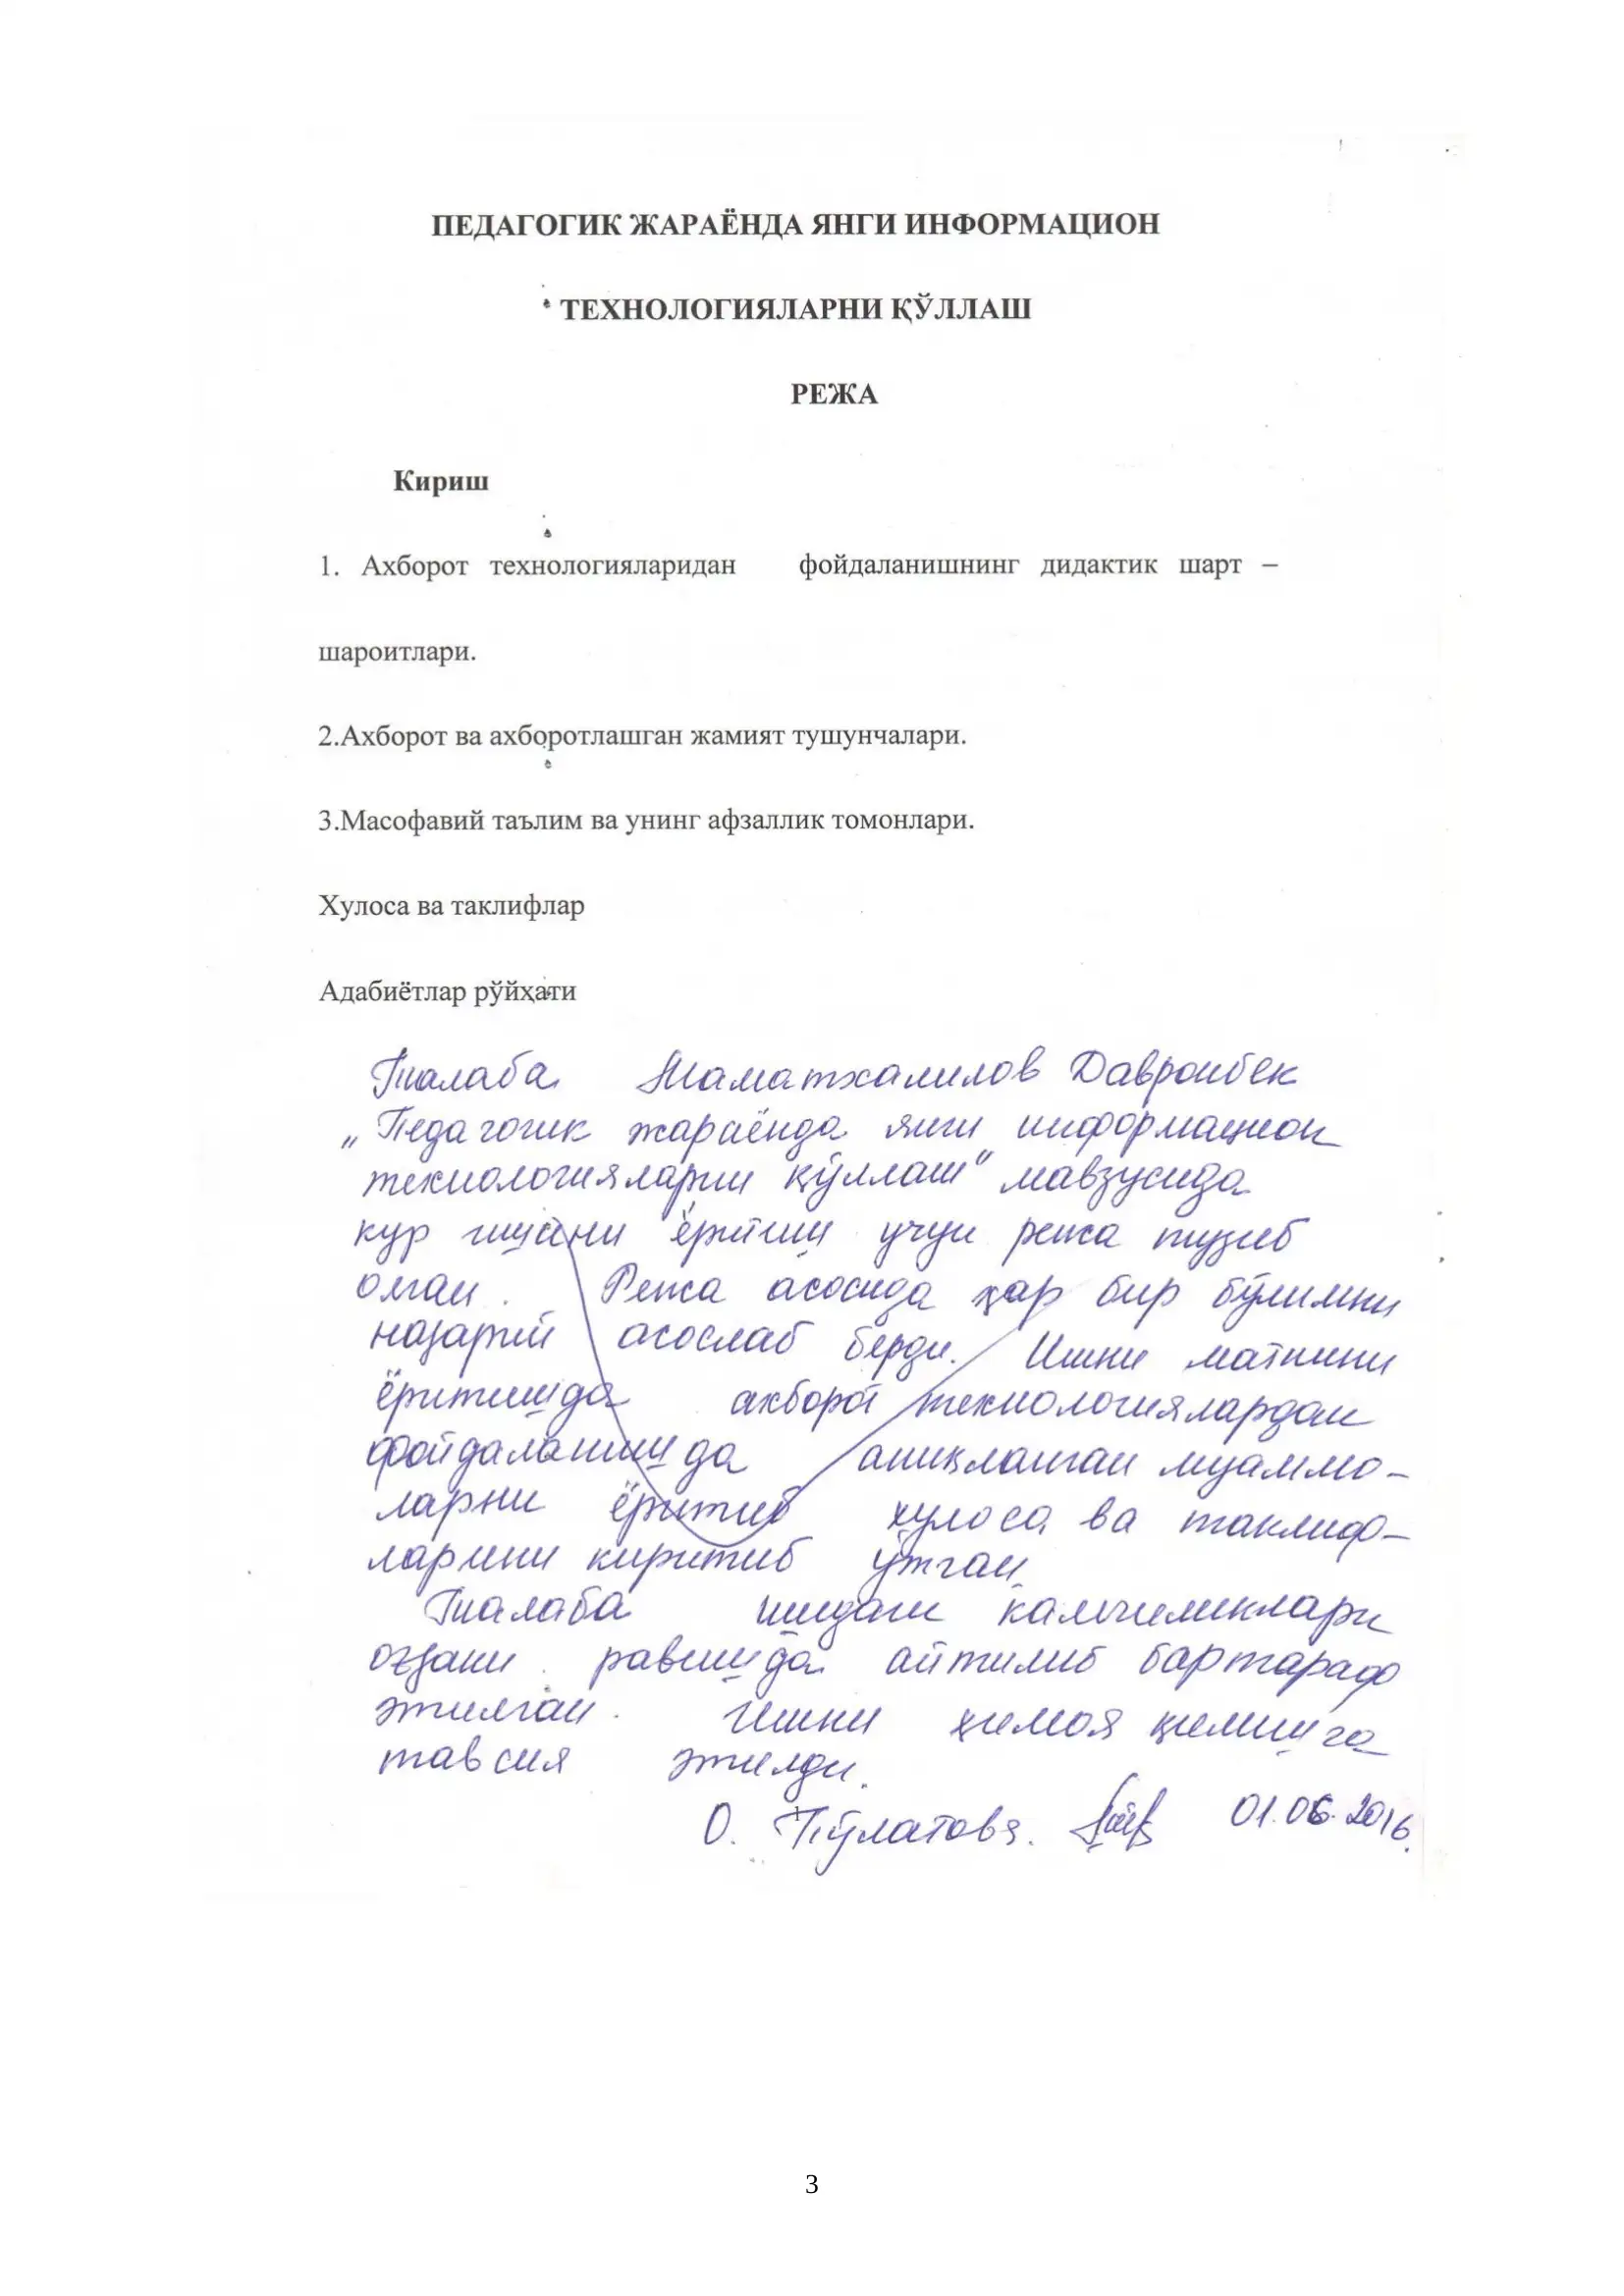 ПЕДАГОГИК ЖАРАЁНДА ЯНГИ ИНФОРМАЦИОН
ТЕХНОЛОГИЯЛАРНИ ҚЎЛЛАШ
РЕЖА
Кириш
1. Ахборот технологияларидан фойдаланишнинг дидактик шарт –
шароитлари.
2.Ахборот ва ахборотлашган жамият тушунчалари.
3.Масофавий таълим ва унинг афзаллик томонлари.
Хулоса ва таклифлар
Адабиётлар рўйҳати
Талаба Маматхалилов Давронбек
„Педагогик жараёнда янги информацион
технологияларни қўллаш" мавзусида
кур ишини ёритиш учун режа тузиб
олган. Режа асосида ҳар бир бўлимни
назарий асослаб берди. Ишни матнини
ёритишда ахборот технологиялардан
фойдаланишда аниқланган муаммо-
ларни ёритиб хулоса ва таклиф-
ларини киритиб ўтган.
Талаба ишдаги камчиликлари
оғзаки равишда айтилиб бартараф
этилган. Ишни ҳимоя қилишга
тавсия этилди.
О. Пўлатова. 01.06.2016.
3